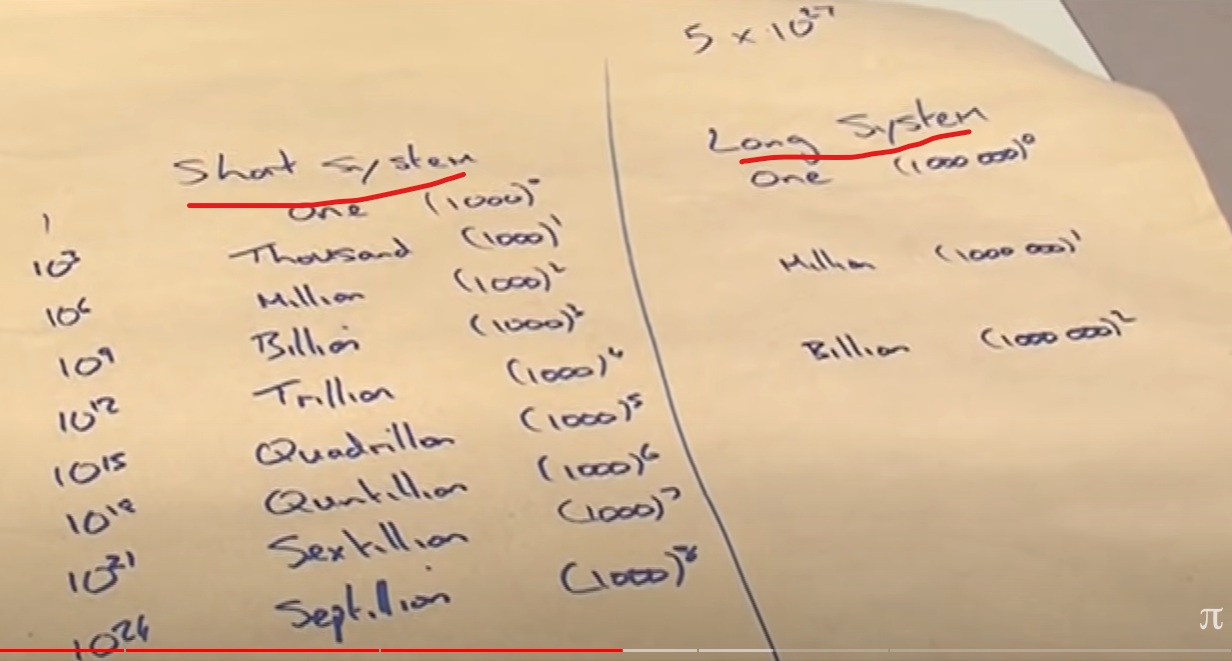 5 × 10²⁷
Short System
One (1000)⁰
1
10³ Thousand (1000)¹
10⁶ Million (1000)²
10⁹ Billion (1000)³
10¹² Trillion (1000)⁴
10¹⁵ Quadrillon (1000)⁵
10¹⁸ Quntillion (1000)⁶
10²¹ Sextillion (1000)⁷
10²⁴ Septillion (1000)⁸
Long System
One (1000 000)⁰
Million (1000 000)¹
Billion (1000 000)²
π